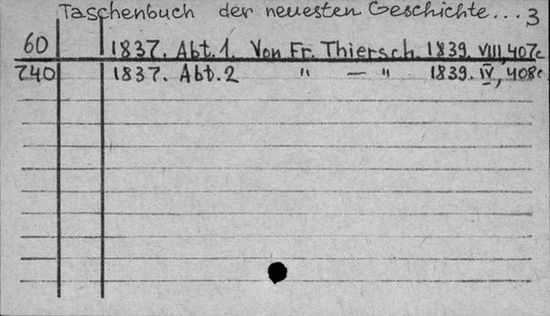 Taschenbuch der neuesten Geschichte... 3
60 1837. Abt. 1. Von Fr. Thiersch. 1839. VIII, 407c
240 1837. Abt. 2 " — " 1839. IV, 408c